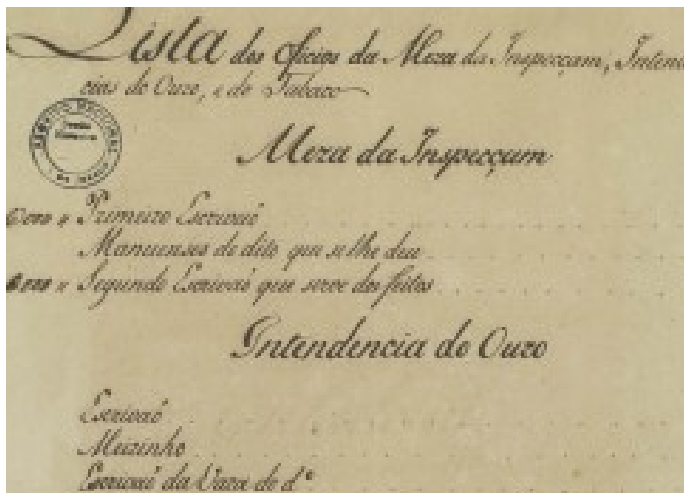 Lista dos Officios da Meza da Inspecçam, Intenden
cias do Ouro, e do Tabaco
Meza da Inspecçam
Primeiro Escrivaõ
Manuenses do dito que se lhe deu
Segundo Escrivaõ que serve dos feitos
Intendencia do Ouro
Escrivaõ
Meirinho
Escrivaõ da Vara do dº